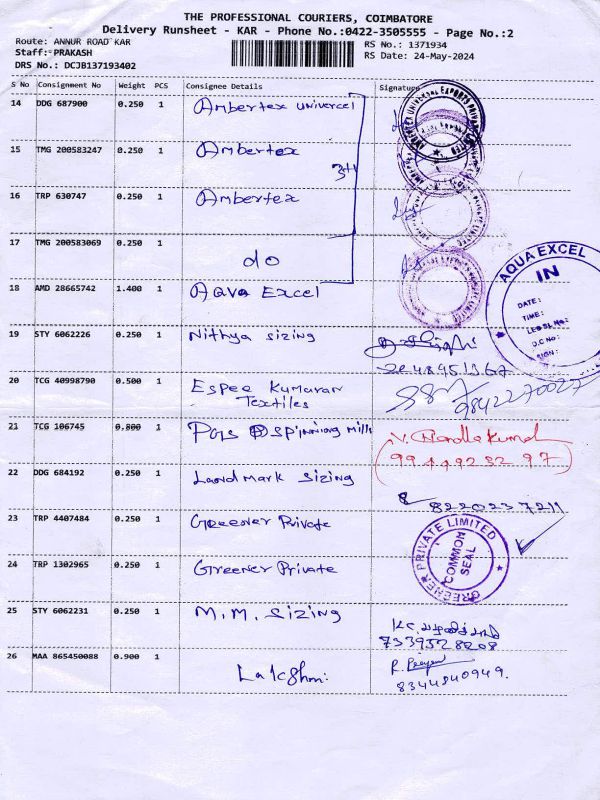 THE PROFESSIONAL COURIERS, COIMBATORE
Delivery Runsheet - KAR - Phone No.:0422-3505555 - Page No.:2
Route: ANNUR ROAD KAR
RS No.: 1371934
Staff: PRAKASH
RS Date: 24-May-2024
DRS No.: DCJB137193402
S No Consignment No Weight PCS Consignee Details Signature
14 DDG 687900 0.250 1 Ambertex univercel
15 TMG 200583247 0.250 1 Ambertex
16 TRP 630747 0.250 1 Ambertex
17 TMG 200583069 0.250 1 do
18 AMD 28665742 1.400 1 Aqva Excel
AQUA EXCEL
IN
DATE:
TIME:
D.C No:
SIGN:
19 STY 6062226 0.250 1 Nithya sizing
20 TCG 40998790 0.500 1 Espee Kumaran
Textiles
9842270027
21 TCG 106745 0.800 1 spinning mills
22 DDG 684192 0.250 1 Land mark sizing
8220237211
23 TRP 4407484 0.250 1 Greener Private
24 TRP 1302965 0.250 1 Greener Private
GREENER PRIVATE LIMITED
COMMON
SEAL
25 STY 6062231 0.250 1 M.M. Sizing
7339528208
26 MAA 865450088 0.900 1 Lakshmi
8344840949.